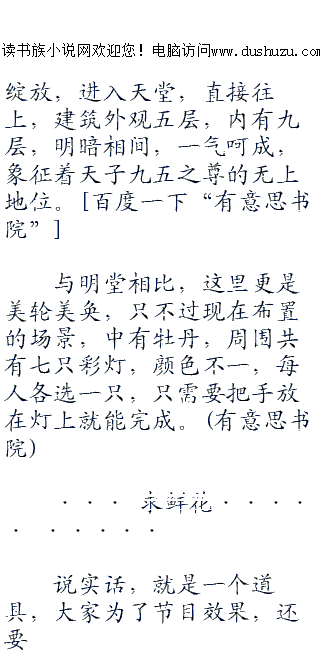 读书族小说网欢迎您！电脑访问www.dushuzu.com
绽放，进入天堂，直接往
上，建筑外观五层，内有九
层，明暗相间，一气呵成，
象征着天子九五之尊的无上
地位。[百度一下“有意思书
院”]
与明堂相比，这里更是
美轮美奂，只不过现在布置
的场景，中有牡丹，周围共
有七只彩灯，颜色不一，每
人各选一只，只需要把手放
在灯上就能完成。(有意思书
院)
···求鲜花····
······
说实话，就是一个道
具，大家为了节目效果，还
要